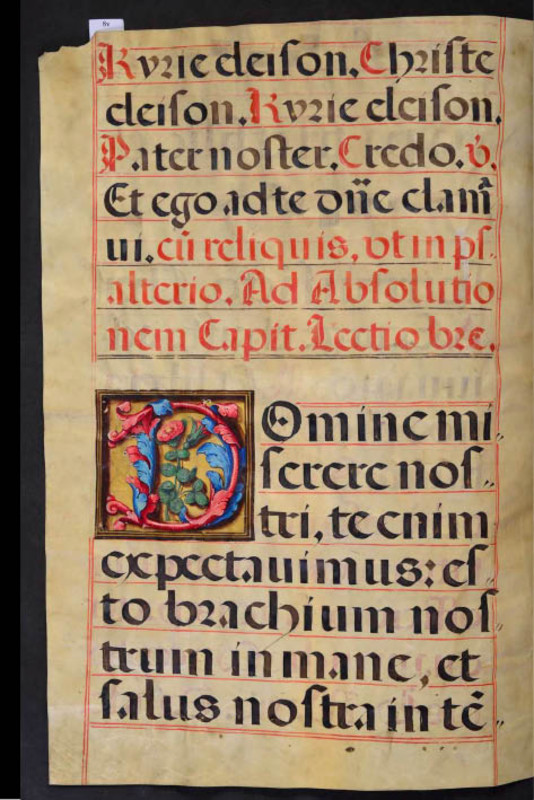 6v
Kyrie eleison. Christe
eleison. Kyrie eleison.
Pater noster. Credo. v̓.
Et ego ad te dñe clamā
ui. cū reliquis, vt in ps-
alterio. Ad Absolutio
nem Capit. Lectio bre.
Domine mi-
serere nos-
tri, te enim
expectauimus: es-
to brachium nos-
trum in mane, et
salus nostra in tē-